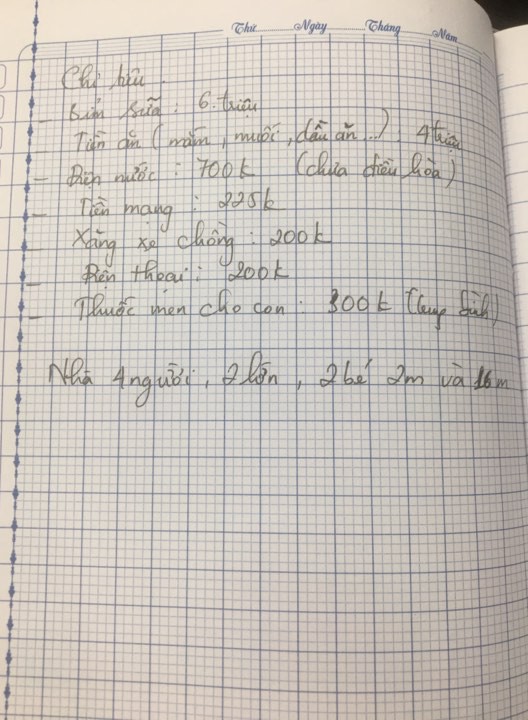 Thứ Ngày Tháng Năm
Chi tiêu.
- Bỉm sữa : 6. triệu
Tiền ăn (mắm, muối, dầu ăn...) : 4 triệu
- Điện nước : 700k (chưa điều hòa)
- Tiền mạng : 225k
- Xăng xe chồng : 200k
- Điện thoại : 200k
- Thuốc men cho con : 300k (trung bình)
Nhà 4 người, 2 lớn, 2 bé 2m và 16m